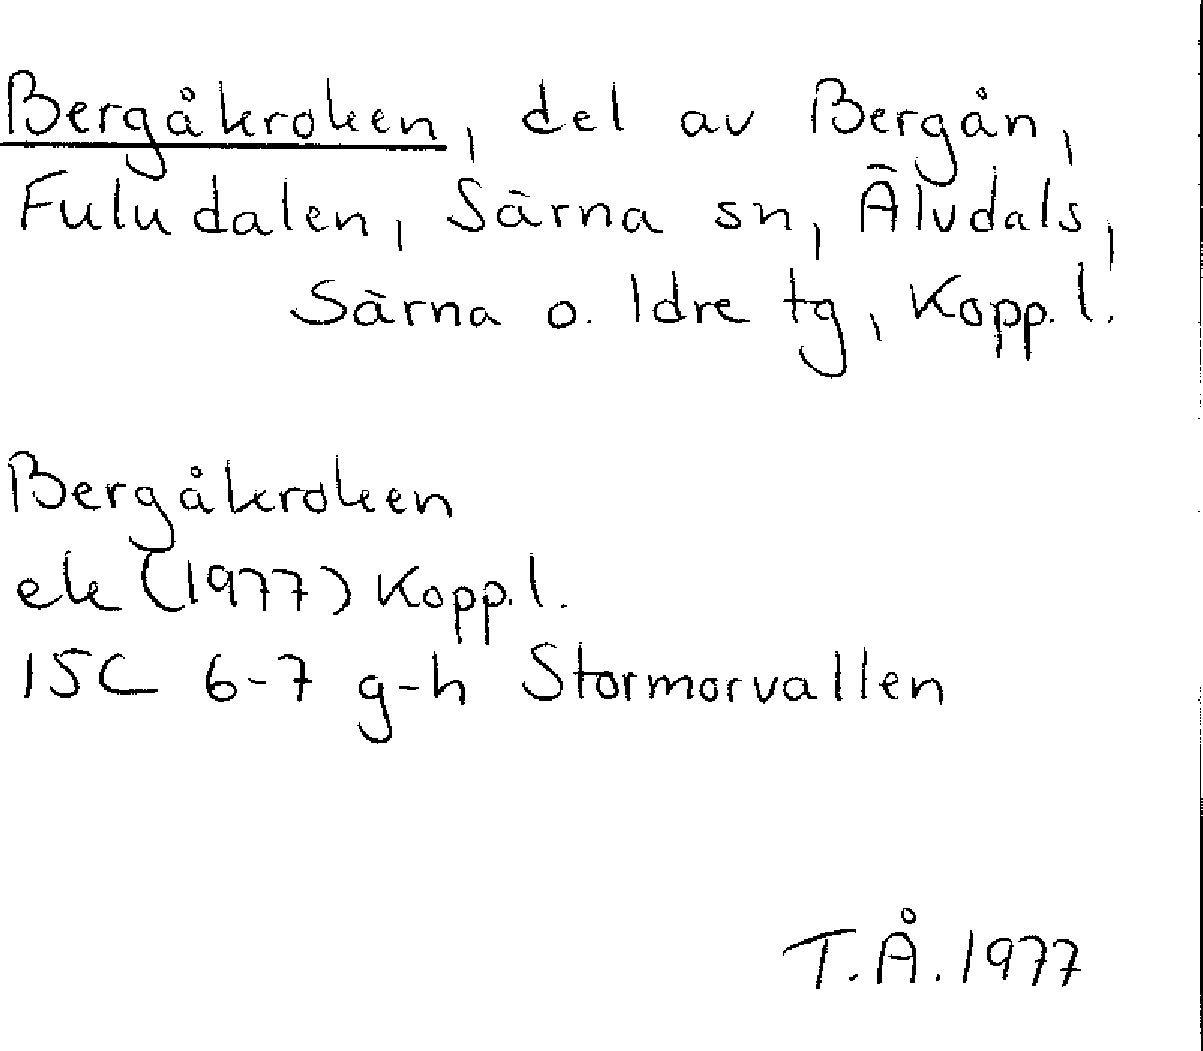 Bergåkroken, del av Bergån,
Fuludalen, Särna sn, Älvdals,
Särna o. Idre tg, Kopp. l.
Bergåkroken
ek (1977) Kopp. l.
15C 6-7 g-h Stormorvallen
T.Å. 1977